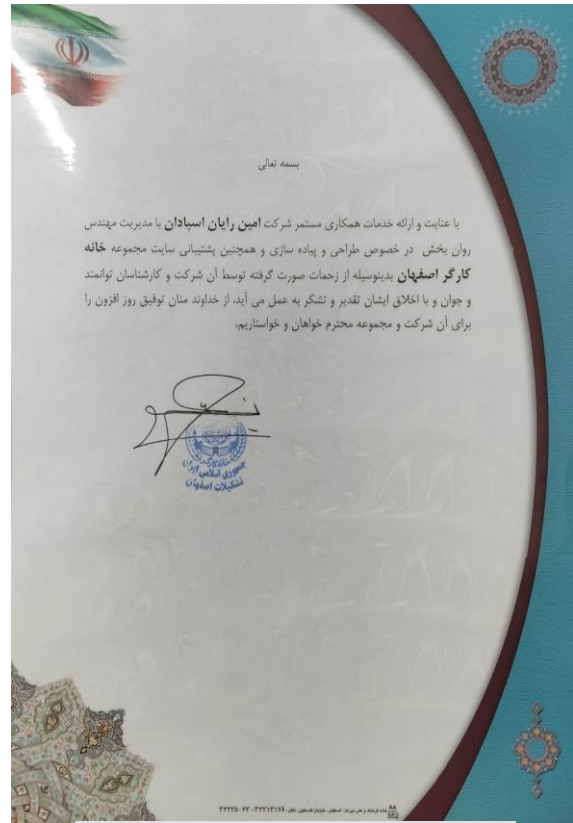 بسمه تعالی
با عنایت و ارائه خدمات همکاری مستمر شرکت امین رایان اسپادان با مدیریت مهندس
روان بخش در خصوص طراحی و پیاده سازی و همچنین پشتیبانی سایت مجموعه خانه
کارگر اصفهان بدینوسیله از زحمات صورت گرفته توسط آن شرکت و کارشناسان توانمند
و جوان و با اخلاق ایشان تقدیر و تشکر به عمل می آید. از خداوند منان توفیق روز افزون را
برای آن شرکت و مجموعه محترم خواهان و خواستاریم.
خانه کارگر
جمهوری اسلامی ایران
تشکیلات اصفهان
A4
352